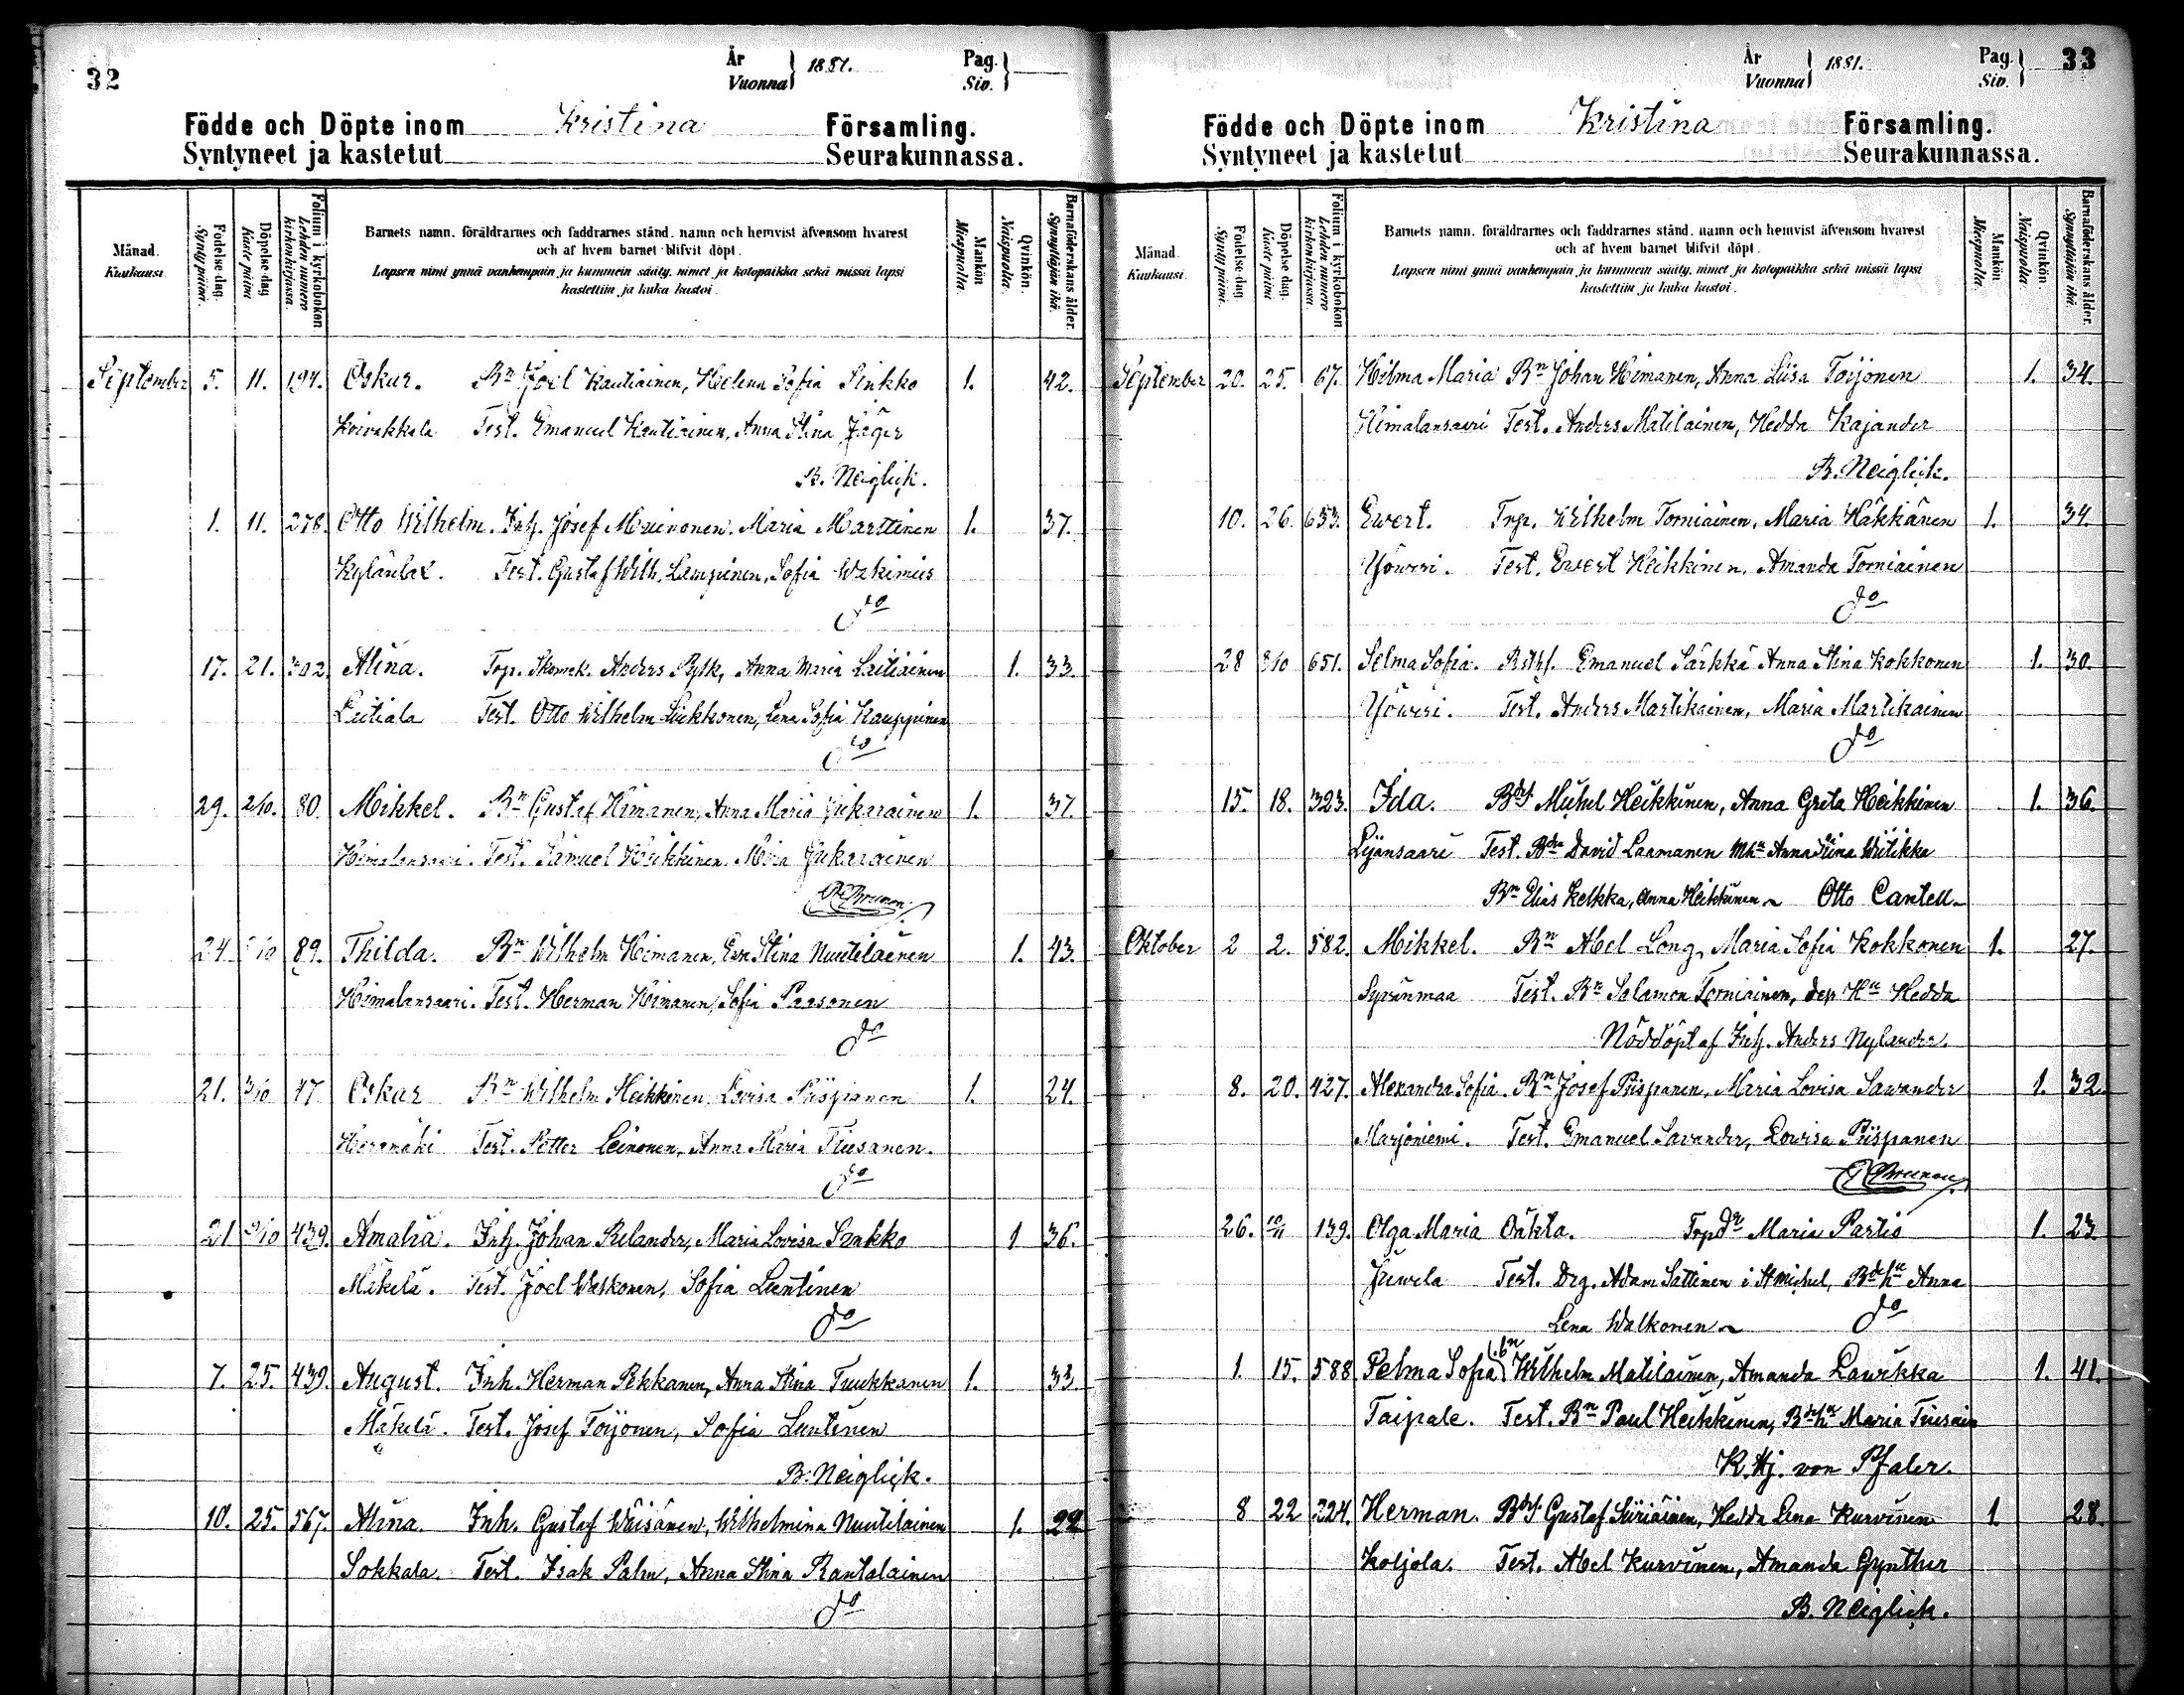 32
År
Vuonna
1881.
Pag.
Siv.
Födde och Döpte inom Kristina Församling.
Syntyneet ja kastetut Seurakunnassa.
Månad.
Kuukausi.
Födelse-dag.
Synty päivä.
Döpelse-dag
Kaste päivä
Folium i kyrkoboken
Lehden numero
kirkonkirjassa.
Barnets namn. föräldrarnes och faddrarnes stånd. namn och hemvist äfvensom hvarest
och af hvem barnet blifvit döpt.
Lapsen nimi ynnä vanhempain ja kummein sääty. nimet ja kotopaikka sekä missä lapsi
kastettiin ja kuka kastoi.
Mankön
Miespuolia.
Qvinkön.
Vaispuolia.
Barnaföderskans ålder.
Synnyttäjän ikä.
September 5. 11. 194. Oskar. Bn Joel Kautiainen, Helena Sofia Sinkko 1. 42.
Koivakkala Test. Emanuel Kautiainen, Anna Stina Jäger
B. Neiglick.
1. 11. 278. Otto Wilhelm. Inh. Josef Muinonen. Maria Marttinen 1. 37.
Kylänlax. Test. Gustaf Wilh. Lampinen, Sofia Wakimies
do
17. 21. 302. Alina. Torp. Skomak. Anders Pylk, Anna Maria Laitiainen 1. 33.
Leitiala Test. Otto Wilhelm Liukkonen, Lena Sofia Kauppinen
do
29. 2/10. 80. Mikkel. Bn Gustaf Himanen, Anna Maria Jukarainen 1. 37.
Himalansaari. Test. Samuel Heikkinen, Mina Jukarainen
24. 89. Thilda. Bn Wilhelm Himanen, Eva Stina Nuutilainen 1. 43.
Himalansaari. Test. Herman Himanen, Sofia Paasonen
do
21. 3/10 47 Oskar Bn Wilhelm Heikkinen, Lovisa Piispanen 1. 24.
Heramäki Test. Petter Leinonen, Anna Maria Tiusanen.
do
21 439. Amalia. Inh. Johan Relander, Maria Lovisa Sinkko 1 36.
Mäkelä. Test. Joel Waskonen, Sofia Luntinen
do
7. 25. 439. August. Inh. Herman Pekkanen, Anna Stina Tuukkanen 1. 33.
Mäkelä. Test. Josef Toijonen, Sofia Luntinen
B. Neiglick.
10. 25. 567. Alina. Inh. Gustaf Wäisänen, Wilhelmina Nuutilainen 1. 22
Sokkala. Test. Isak Palm, Anna Stina Rantalainen
do
År
Vuonna
1881.
Pag.
Siv.
33
Födde och Döpte inom Kristina Församling.
Syntyneet ja kastetut Seurakunnassa.
Månad.
Kuukausi.
Födelse-dag
Synty päivä.
Döpelse dag.
Kaste päivä
Folium i kyrkoboken
Lehden numero
kirkonkirjassa.
Barnets namn. föräldrarnes och faddrarnes stånd. namn och hemvist äfvensom hvarest
och af hvem barnet blifvit döpt.
Lapsen nimi ynnä vanhempain ja kummein sääty. nimet ja kotopaikka sekä missä lapsi
kastettiin ja kuka kastoi.
Mankön.
Miespuolia.
Qvinkön.
Vaispuolia.
Barnaföderskans ålder.
Synnyttäjän ikä.
September 20. 25. 67. Hilma Maria Bn Johan Himanen, Anna Liisa Toijonen 1. 34.
Himalansaari Test. Anders Matilainen, Hedda Kajander
B. Neiglick.
10. 26. 653. Ewert. Trp. Wilhelm Torniainen, Maria Häkkänen 1. 34.
Yöwesi. Test. Ewert Heikkinen, Amanda Torniainen
do
28 3/10 651. Selma Sofia. Emanuel Särkkä Anna Stina Kokkonen 1. 30.
Yöwesi. Test. Anders Martikainen, Maria Martikainen
do
15. 18. 323. Ida. Bds Mickel Heikkinen, Anna Greta Heikkinen 1. 36.
Lijansaari Test. Bdn David Laamanen Mhu Anna Stina Wiitikka
Bn Elias Kelkka, Anna Heikkinen Otto Cantell
Oktober 2 2. 582. Mikkel. Bn Abel Long, Maria Sofia Kokkonen 1. 27.
Syrsinmaa Test. Bn Salamon Torniainen, des Hu Hedda
Nöddöpt af Inh. Anders Nylander.
8. 20. 427. Alexandra Sofia. Bn Josef Piispanen, Maria Lovisa Sawander 1. 32.
Marjoniemi. Test. Emanuel Savander, Lovisa Piispanen
26. 10/11 139. Olga Maria Oäkta. Torpdr Maria Partio 1. 23.
Juwola Test. Drg. Adam Sattinen i St Michel, Bdshu Anna
Lena Walkonen do
1. 15. 588 Selma Sofia Bn Wilhelm Matilainen, Amanda Lawikka 1. 41.
Taipale. Test. Bn Paul Heikkinen, Bdshu Maria
K. Hj. von Pfaler.
8 22 224. Herman. Bds Gustaf Siiriäinen, Hedda Lena Kurvinen 1. 28.
Koljola. Test. Abel Kurvinen, Amanda Gynther
B. Neiglick.